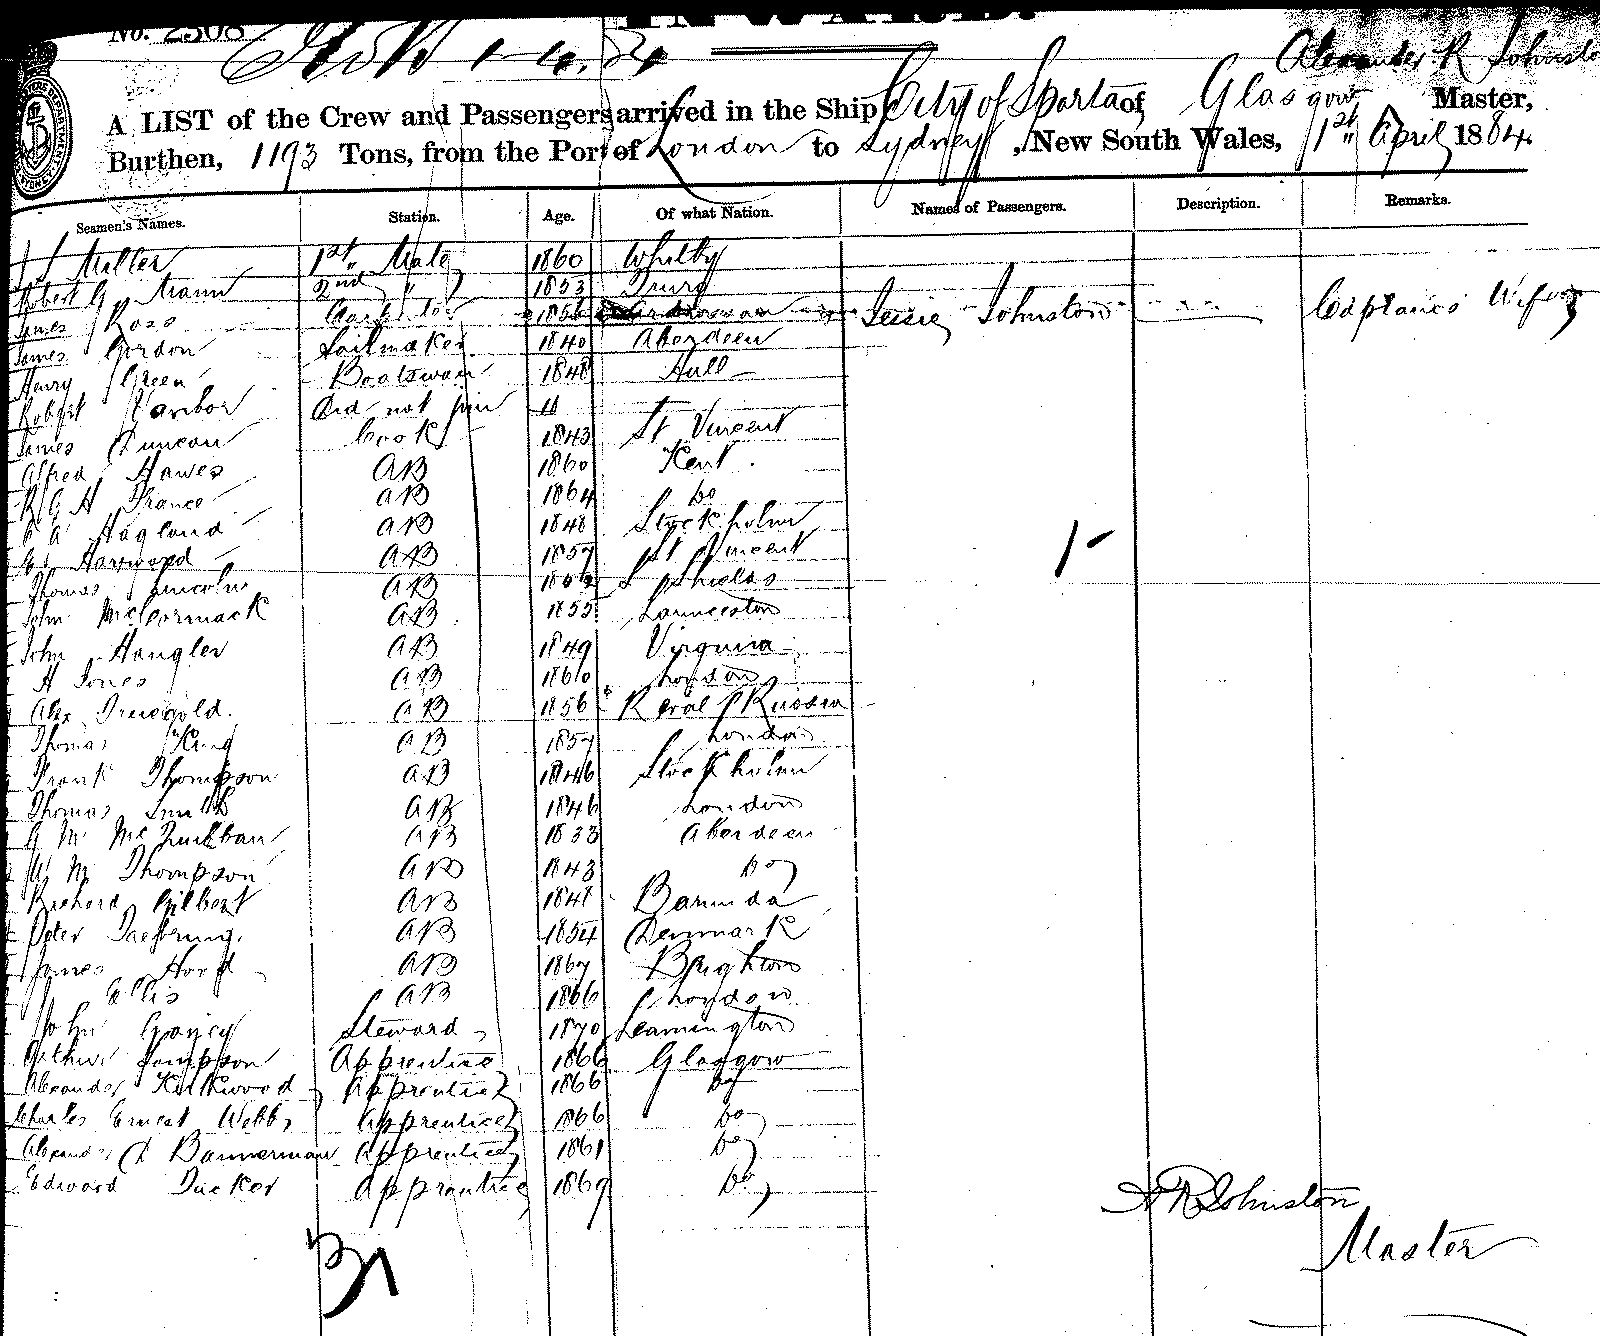 No. 2508
INWARD.
Alexander R Johnston
A LIST of the Crew and Passengers arrived in the Ship City of Sparta of Glasgow Master,
Burthen, 1193 Tons, from the Port of London to Sydney, New South Wales, 1st April 1884
Seamen's Names. Station. Age. Of what Nation. Names of Passengers. Description. Remarks.
Miller 1st Mate 1860 Whitby
Robert G Mann 2nd " 1853 Truro
James Ross Carpenter 1856 Jessie Johnston Captains Wife
James Gordon Sailmaker 1840 Aberdeen
Henry Green Boatswain 1848 Hull
Robert Did not join "
James Duncan Cook 1843 St Vincent
Alfred Hawes AB 1860 Kent
R G H France AB 1864 Do
A Hagland AB 1848 Stockholm
Harwood AB 1857 St Vincent
Thomas Lincoln AB S Shields
John McCormack AB 1855 Launceston
John Hangler AB 1849 Virginia
H Jones AB 1860 London
Alex AB 1856 Reval Russia
Thomas King AB 1857 London
Frank Thompson AB 1846 Stockholm
Thomas Smith AB 1846 London
AB 1833 Aberdeen
W M Thompson AB 1843 Do
Richard Gilbert AB 1848
Peter AB 1854 Denmark
James Hord AB 1867 Brighton
Ellis AB 1866 London
John Steward 1870 Leamington
Arthur Sampson Apprentice 1866 Glasgow
Alexander Kirkwood Apprentice 1866 Do
Charles Ernest Webb Apprentice 1866 Do
Alexander Bannerman Apprentice 1861 Do
Edward Tucker Apprentice 1869 Do
1
A R Johnston
Master
31